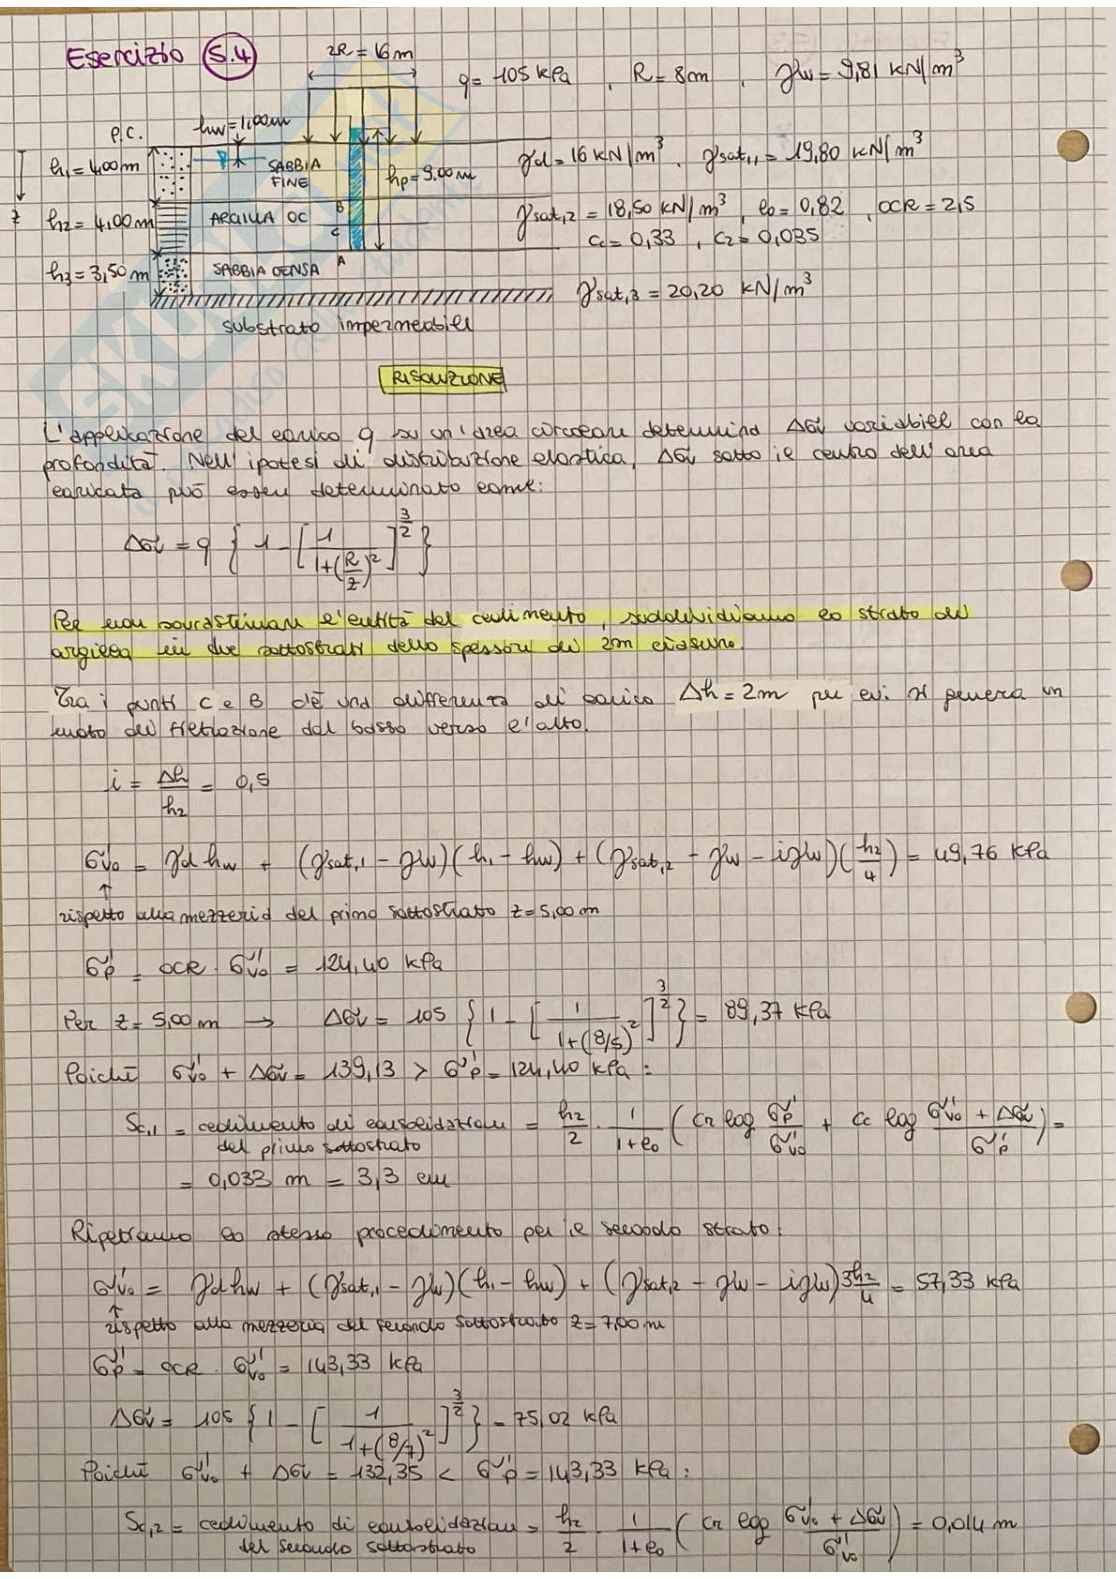 Esercizio 5.4
2R = 16 m
q = 105 kPa , R = 8 m , γw = 9,81 kN/m³
P.C.
hw = 1,00 m
h₁ = 4,00 m
SABBIA FINE
hp = 9,00 m
γd = 16 kN/m³ , γsat,1 = 19,80 kN/m³
z
h₂ = 4,00 m
ARGILLA OC
B
C
γsat,2 = 18,50 kN/m³ , e₀ = 0,82 , OCR = 2,5
cc = 0,33 , cr = 0,035
h₃ = 3,50 m
SABBIA DENSA
A
γsat,3 = 20,20 kN/m³
substrato impermeabile
RISOLUZIONE
L'applicazione del carico q su un'area circolare determina Δσv variabile con la
profondità. Nell'ipotesi di distribuzione elastica, Δσv sotto il centro dell'area
caricata può essere determinato come:
Δσv = q { 1 - [ 1 / (1+(R/z)²) ]^(3/2) }
Per non sovrastimare l'entità del cedimento, suddividiamo lo strato di
argilla in due sottostrati dello spessore di 2m ciascuno.
Tra i punti C e B c'è una differenza di carico Δh = 2m per cui si genera un
moto di filtrazione dal basso verso l'alto.
i = Δh / h₂ = 0,5
σ'v₀ = γd hw + (γsat,1 - γw)(h₁ - hw) + (γsat,2 - γw - iγw)(h₂/4) = 49,76 kPa
↑
rispetto alla mezzeria del primo sottostrato z = 5,00 m
σ'p = OCR · σ'v₀ = 124,40 kPa
Per z = 5,00 m → Δσv = 105 { 1 - [ 1 / (1+(8/5)²) ]^(3/2) } = 89,37 kPa
Poiché σ'v₀ + Δσv = 139,13 > σ'p = 124,40 kPa :
Sc,1 = cedimento di consolidazione del primo sottostrato = h₂/2 · 1/(1+e₀) ( cr log σ'p/σ'v₀ + cc log (σ'v₀ + Δσv)/σ'p ) =
= 0,033 m = 3,3 cm
Ripetiamo lo stesso procedimento per il secondo strato:
σ'v₀ = γd hw + (γsat,1 - γw)(h₁ - hw) + (γsat,2 - γw - iγw) 3h₂/4 = 57,33 kPa
↑
rispetto alla mezzeria del secondo sottostrato z = 7,00 m
σ'p = OCR · σ'v₀ = 143,33 kPa
Δσv = 105 { 1 - [ 1 / (1+(8/7)²) ]^(3/2) } = 75,02 kPa
Poiché σ'v₀ + Δσv = 132,35 < σ'p = 143,33 kPa :
Sc,2 = cedimento di consolidazione del secondo sottostrato = h₂/2 · 1/(1+e₀) ( cr log (σ'v₀ + Δσv)/σ'v₀ ) = 0,014 m